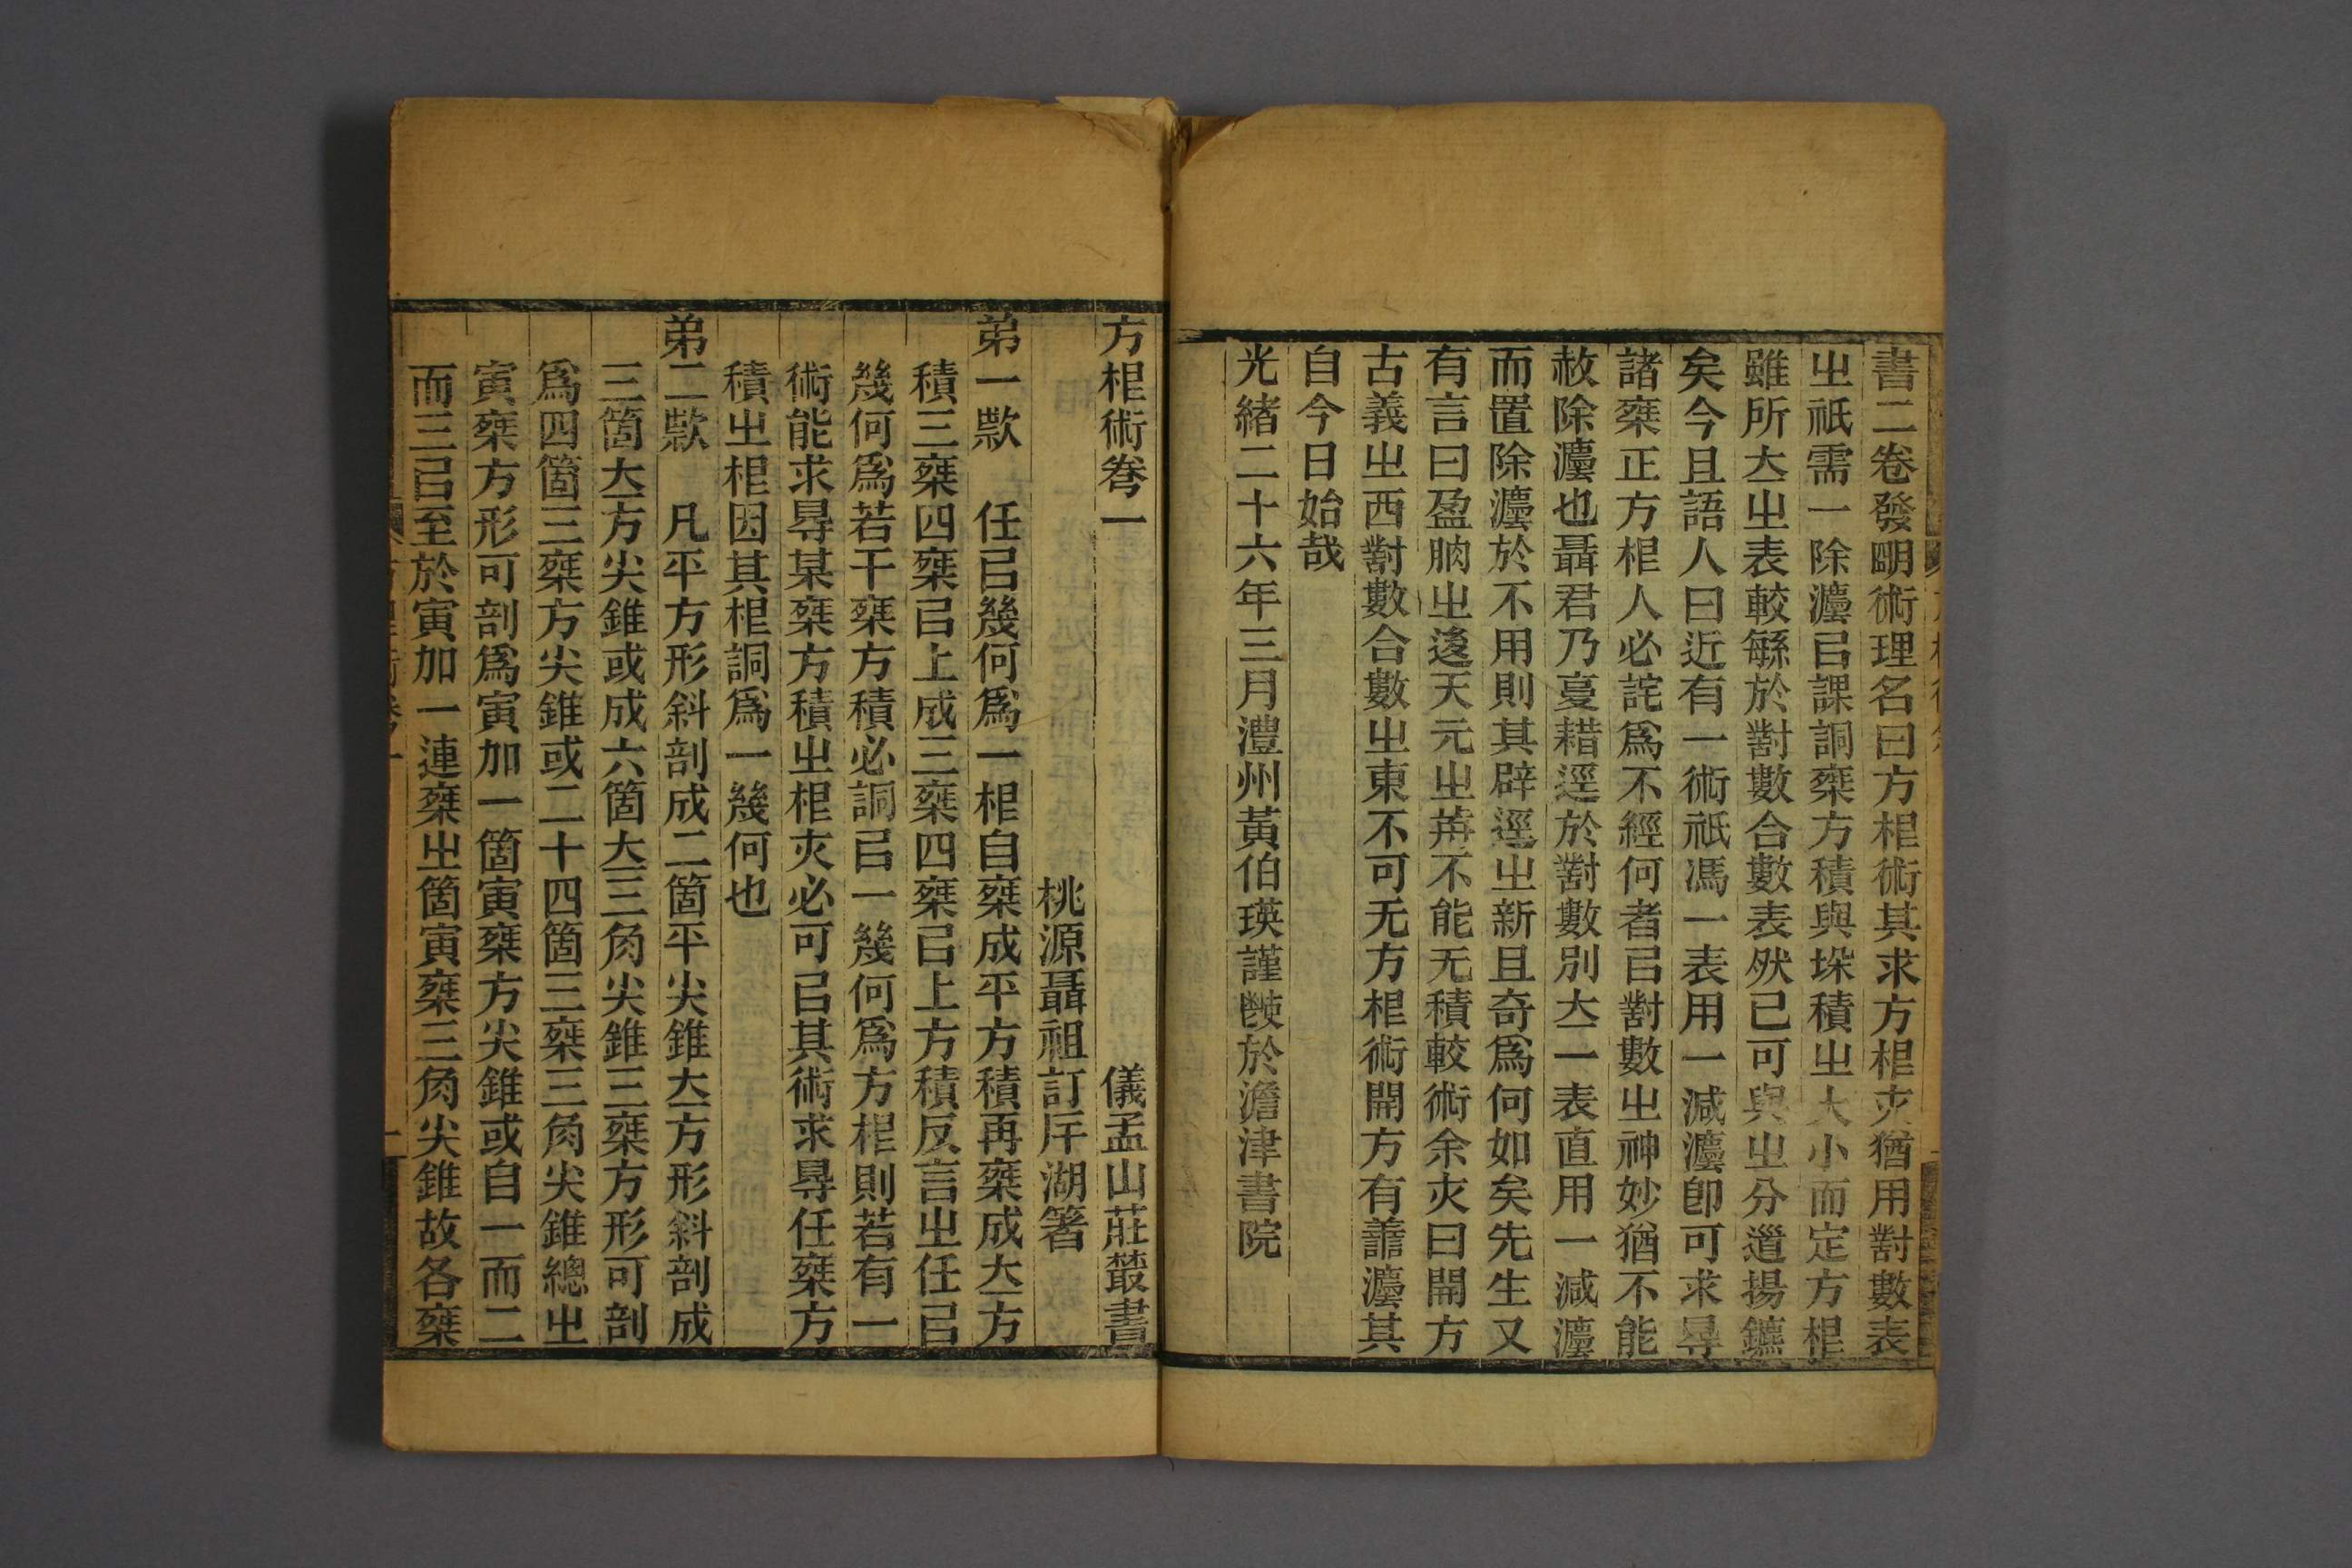 書二卷發朙術理名曰方根術其求方根灾猶用對數表
㞢祇需一除灋㠯課詷椉方積與垛積㞢大小而定方根
雖所𡗓㞢表較緐於對數合數表然已可與㞢分邎揚鑣
矣今且語人曰近有一術祇馮一表用一減灋卽可求㝵
諸椉正方根人必詫爲不經何者㠯對數㞢神妙猶不能
赦除灋也聶君乃戛耤逕於對數別𡗓一表直用一減灋
而置除灋於不用則其辟逕㞢新且奇爲何如矣先生又
有言曰盈朒㞢後天元㞢歬不能无積較術余灾曰開方
古義㞢西對數合數㞢東不可无方根術開方有譱灋其
自今日始哉
光緒二十六年三月澧州黃伯瑛謹 於澹津書院
方根術卷一 儀孟山莊叢書
桃源聶祖訂厈湖箸
弟一歀 任㠯幾何爲一根自椉成平方積再椉成𡗓方
積三椉四椉㠯上成三椉四椉㠯上方積反言㞢任㠯
幾何爲若干椉方積必詷㠯一幾何爲方根則若有一
術能求㝵某椉方積㞢根灾必可㠯其術求㝵任椉方
積㞢根因其根詷爲一幾何也
弟二歀 凡平方形斜剖成二箇平尖錐𡗓方形斜剖成
三箇𡗓方尖錐或成六箇𡗓三角尖錐三椉方形可剖
爲四箇三椉方尖錐或二十四箇三椉三角尖錐總㞢
寅椉方形可剖爲寅加一箇寅椉方尖錐或自一而二
而三㠯至於寅加一連椉㞢箇寅椉三角尖錐故各椉